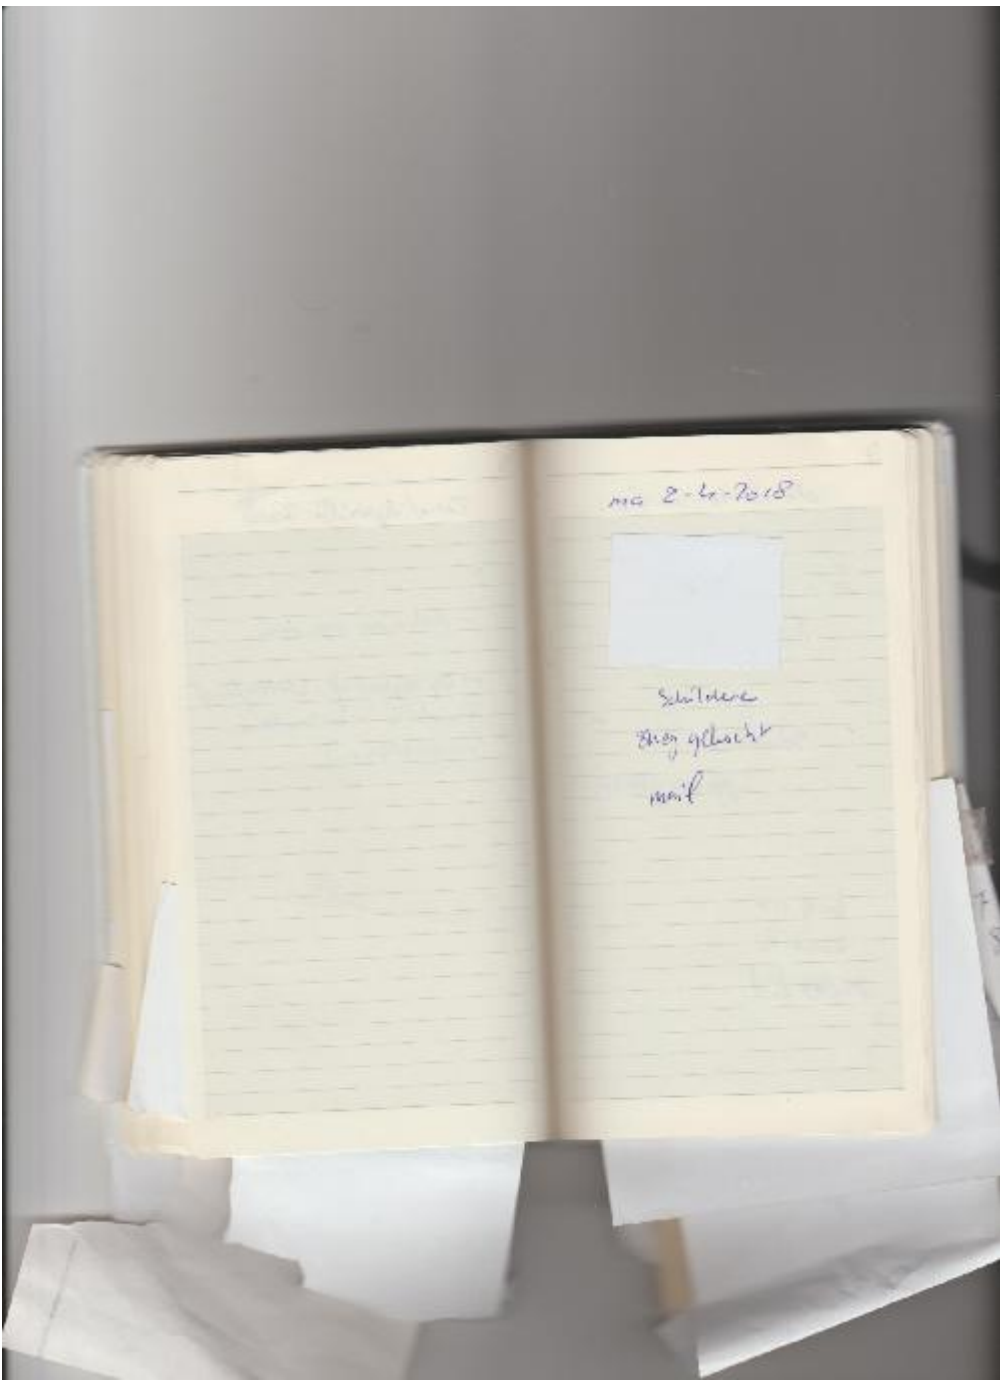 ma 2-4-2018
Schildere
gebracht
mail